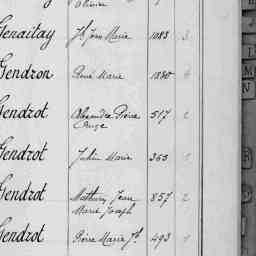 Olivier
Genaitay Jh Jean Marie 1083 3
Gendron René Marie 1830
Gendrot Alexandre Pierre 517 2
Ange
Gendrot Julien Marie 363 1
Gendrot Mathurin Jean 857 2
Marie Joseph
Gendrot Pierre Marie Jh 493 1
L
M
N